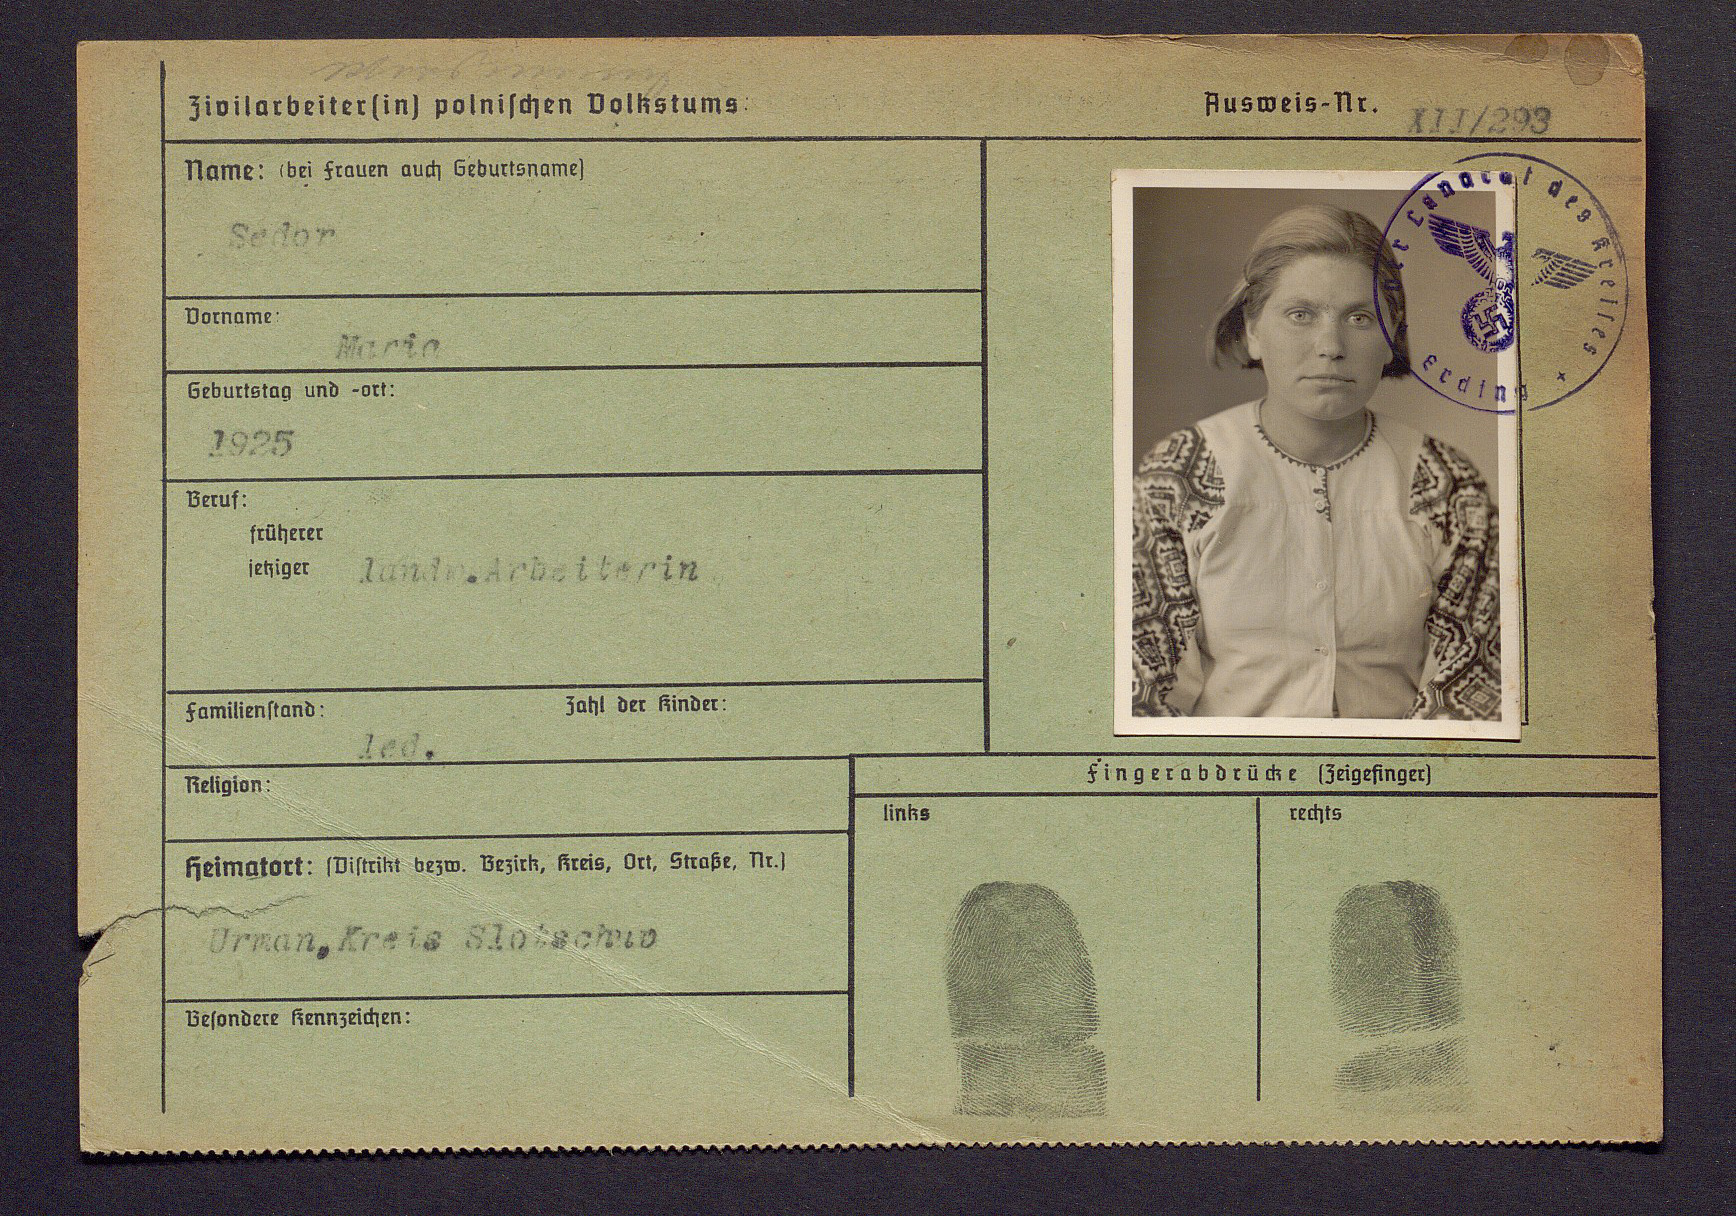 Zivilarbeiter(in) polnischen Volkstums:
Ausweis-Nr. XII/293
Name: (bei Frauen auch Geburtsname)
Sedor
Vorname:
Maria
Geburtstag und -ort:
1925
Beruf:
früherer
jetziger landw. Arbeiterin
Familienstand: Zahl der Kinder:
led.
Religion:
Heimatort: (Distrikt bezw. Bezirk, Kreis, Ort, Straße, Nr.)
Urman, Kreis Slotschuw
Besondere Kennzeichen:
Der Landrat des Kreises
Erding
Fingerabdrücke (Zeigefinger)
links rechts